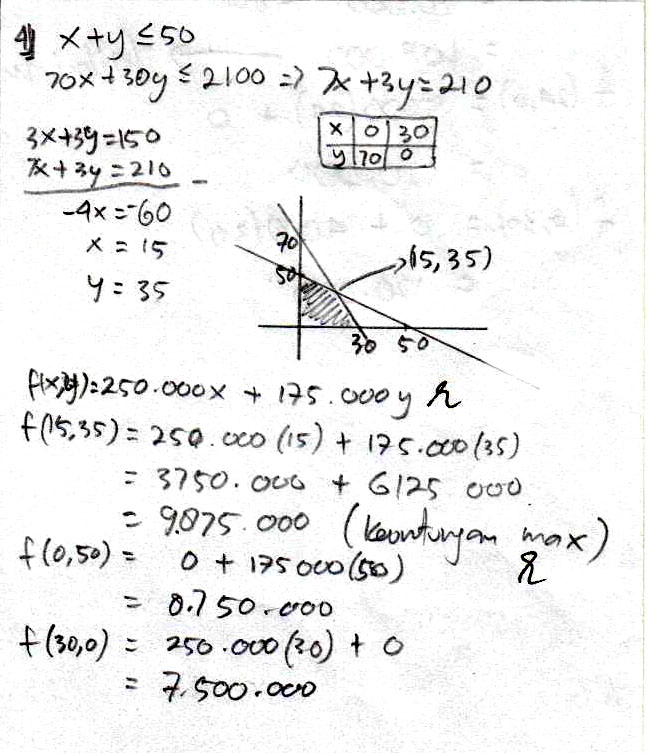 4) x+y ≤ 50
70x+30y ≤ 2100 => 7x+3y=210
x 0 30
y 70 0
3x+3y=150
7x+3y=210 -
-4x=-60
x = 15
y = 35
70
50
(15,35)
30 50
f(x,y)=250.000x + 175.000y
f(15,35) = 250.000 (15) + 175.000(35)
= 3750.000 + 6125 000
= 9.875.000 (keuntungan max)
f(0,50) = 0 + 175000(50)
= 8.750.000
f(30,0) = 250.000(30) + 0
= 7.500.000